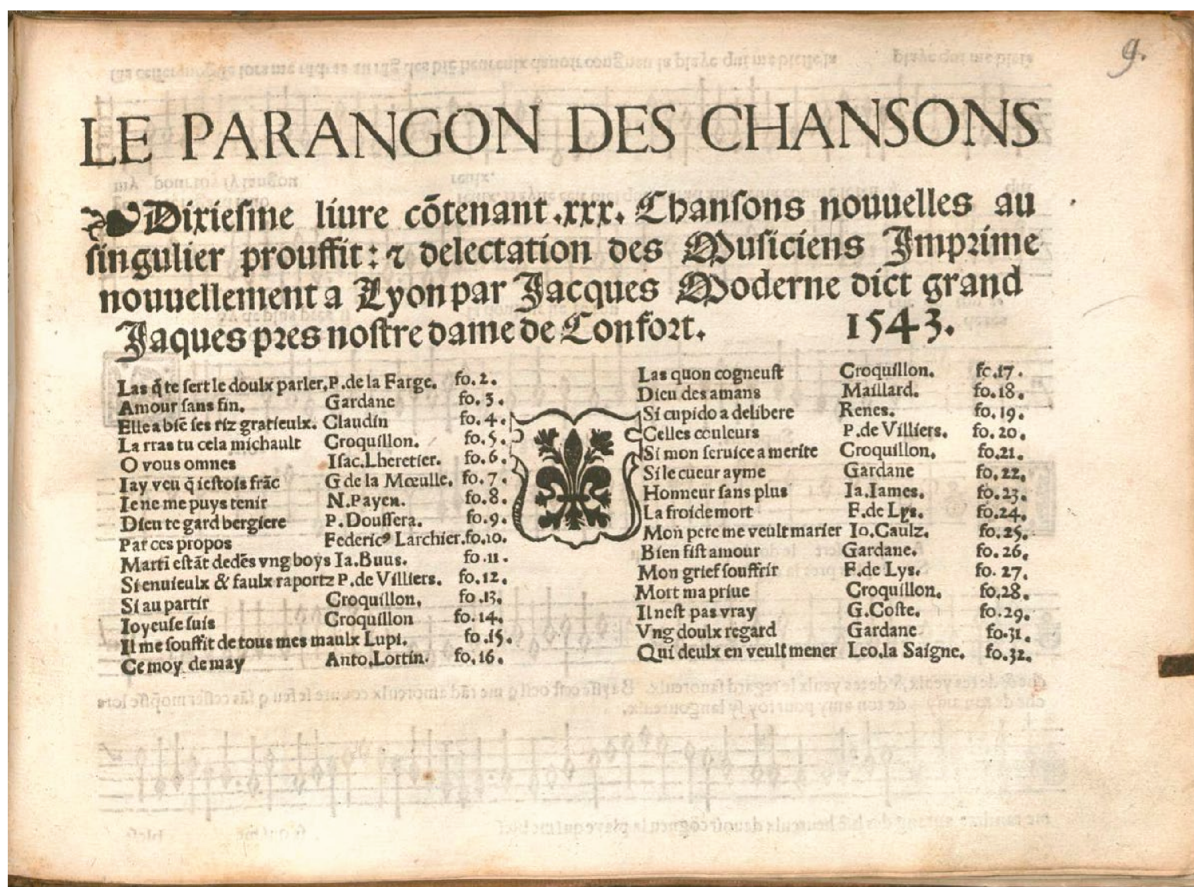 9.
LE PARANGON DES CHANSONS
Dixiesme liure cõtenant .xxx. Chansons nouuelles au
singulier prouffit: ⁊ delectation des Musiciens Imprime
nouuellement a Lyon par Jacques Moderne dict grand
Jaques pres nostre dame de Confort. 1543.
Las q̃ te sert le doulx parler, P. de la Farge. fo. 2.
Amour sans fin. Gardane fo. 3.
Elle a biẽ ses riz gratieulx. Claudin fo. 4.
La rras tu cela michault Croquillon. fo. 5.
O vous omnes Isac. Lheretier. fo. 6.
Iay veu q̃ iestois frãc G de la Mœulle. fo. 7.
Ie ne me puys tenir N. Payen. fo. 8.
Dieu te gard bergiere P. Doussera. fo. 9.
Par ces propos Federicꝰ Larchier. fo. 10.
Marti estãt dedẽs vng boys Ia. Buus. fo. 11.
Si enuieulx & faulx raportz P. de Villiers. fo. 12.
Si au partir Croquillon, fo. 13.
Ioyeuse suis Croquillon fo. 14.
Il me souffit de tous mes maulx Lupi. fo. 15.
Ce moy de may Anto. Lortin. fo. 16.
Las quon cogneust Croquillon. fo. 17.
Dieu des amans Maillard. fo. 18.
Si cupido a delibere Renes. fo. 19.
Celles couleurs P. de Villiers. fo. 20.
Si mon seruice a merite Croquillon. fo. 21.
Si le cueur ayme Gardane fo. 22.
Honneur sans plus Ia. Iames. fo. 23.
La froide mort F. de Lys. fo. 24.
Mon pere me veult marier Io. Caulz. fo. 25.
Bien fist amour Gardane. fo. 26.
Mon grief souffrir F. de Lys. fo. 27.
Mort ma priue Croquillon. fo. 28.
Il nest pas vray G. Coste. fo. 29.
Vng doulx regard Gardane fo. 31.
Qui deulx en veult mener Leo. la Saigne. fo. 32.